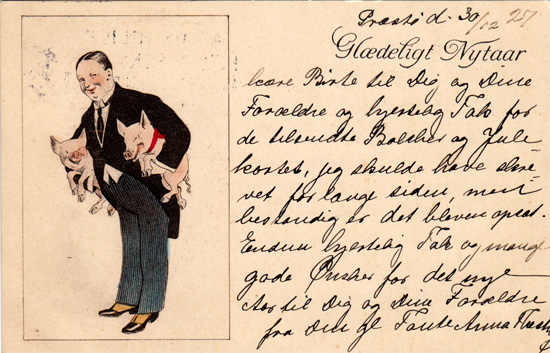 Præstø d. 30/12 27
Glædeligt Nytaar
kære Birte til Dig og Dine
Forældre og hjertelig Tak for
de tilsendte Bolcher og Jule-
kortet, jeg skulde have skre-
vet for længe siden, men
bestandig er det bleven opsat.
Endnu hjertelig Tak og mange
gode Ønsker for det nye
Aar til Dig og Dine Forældre
fra Din gl Tante Anna